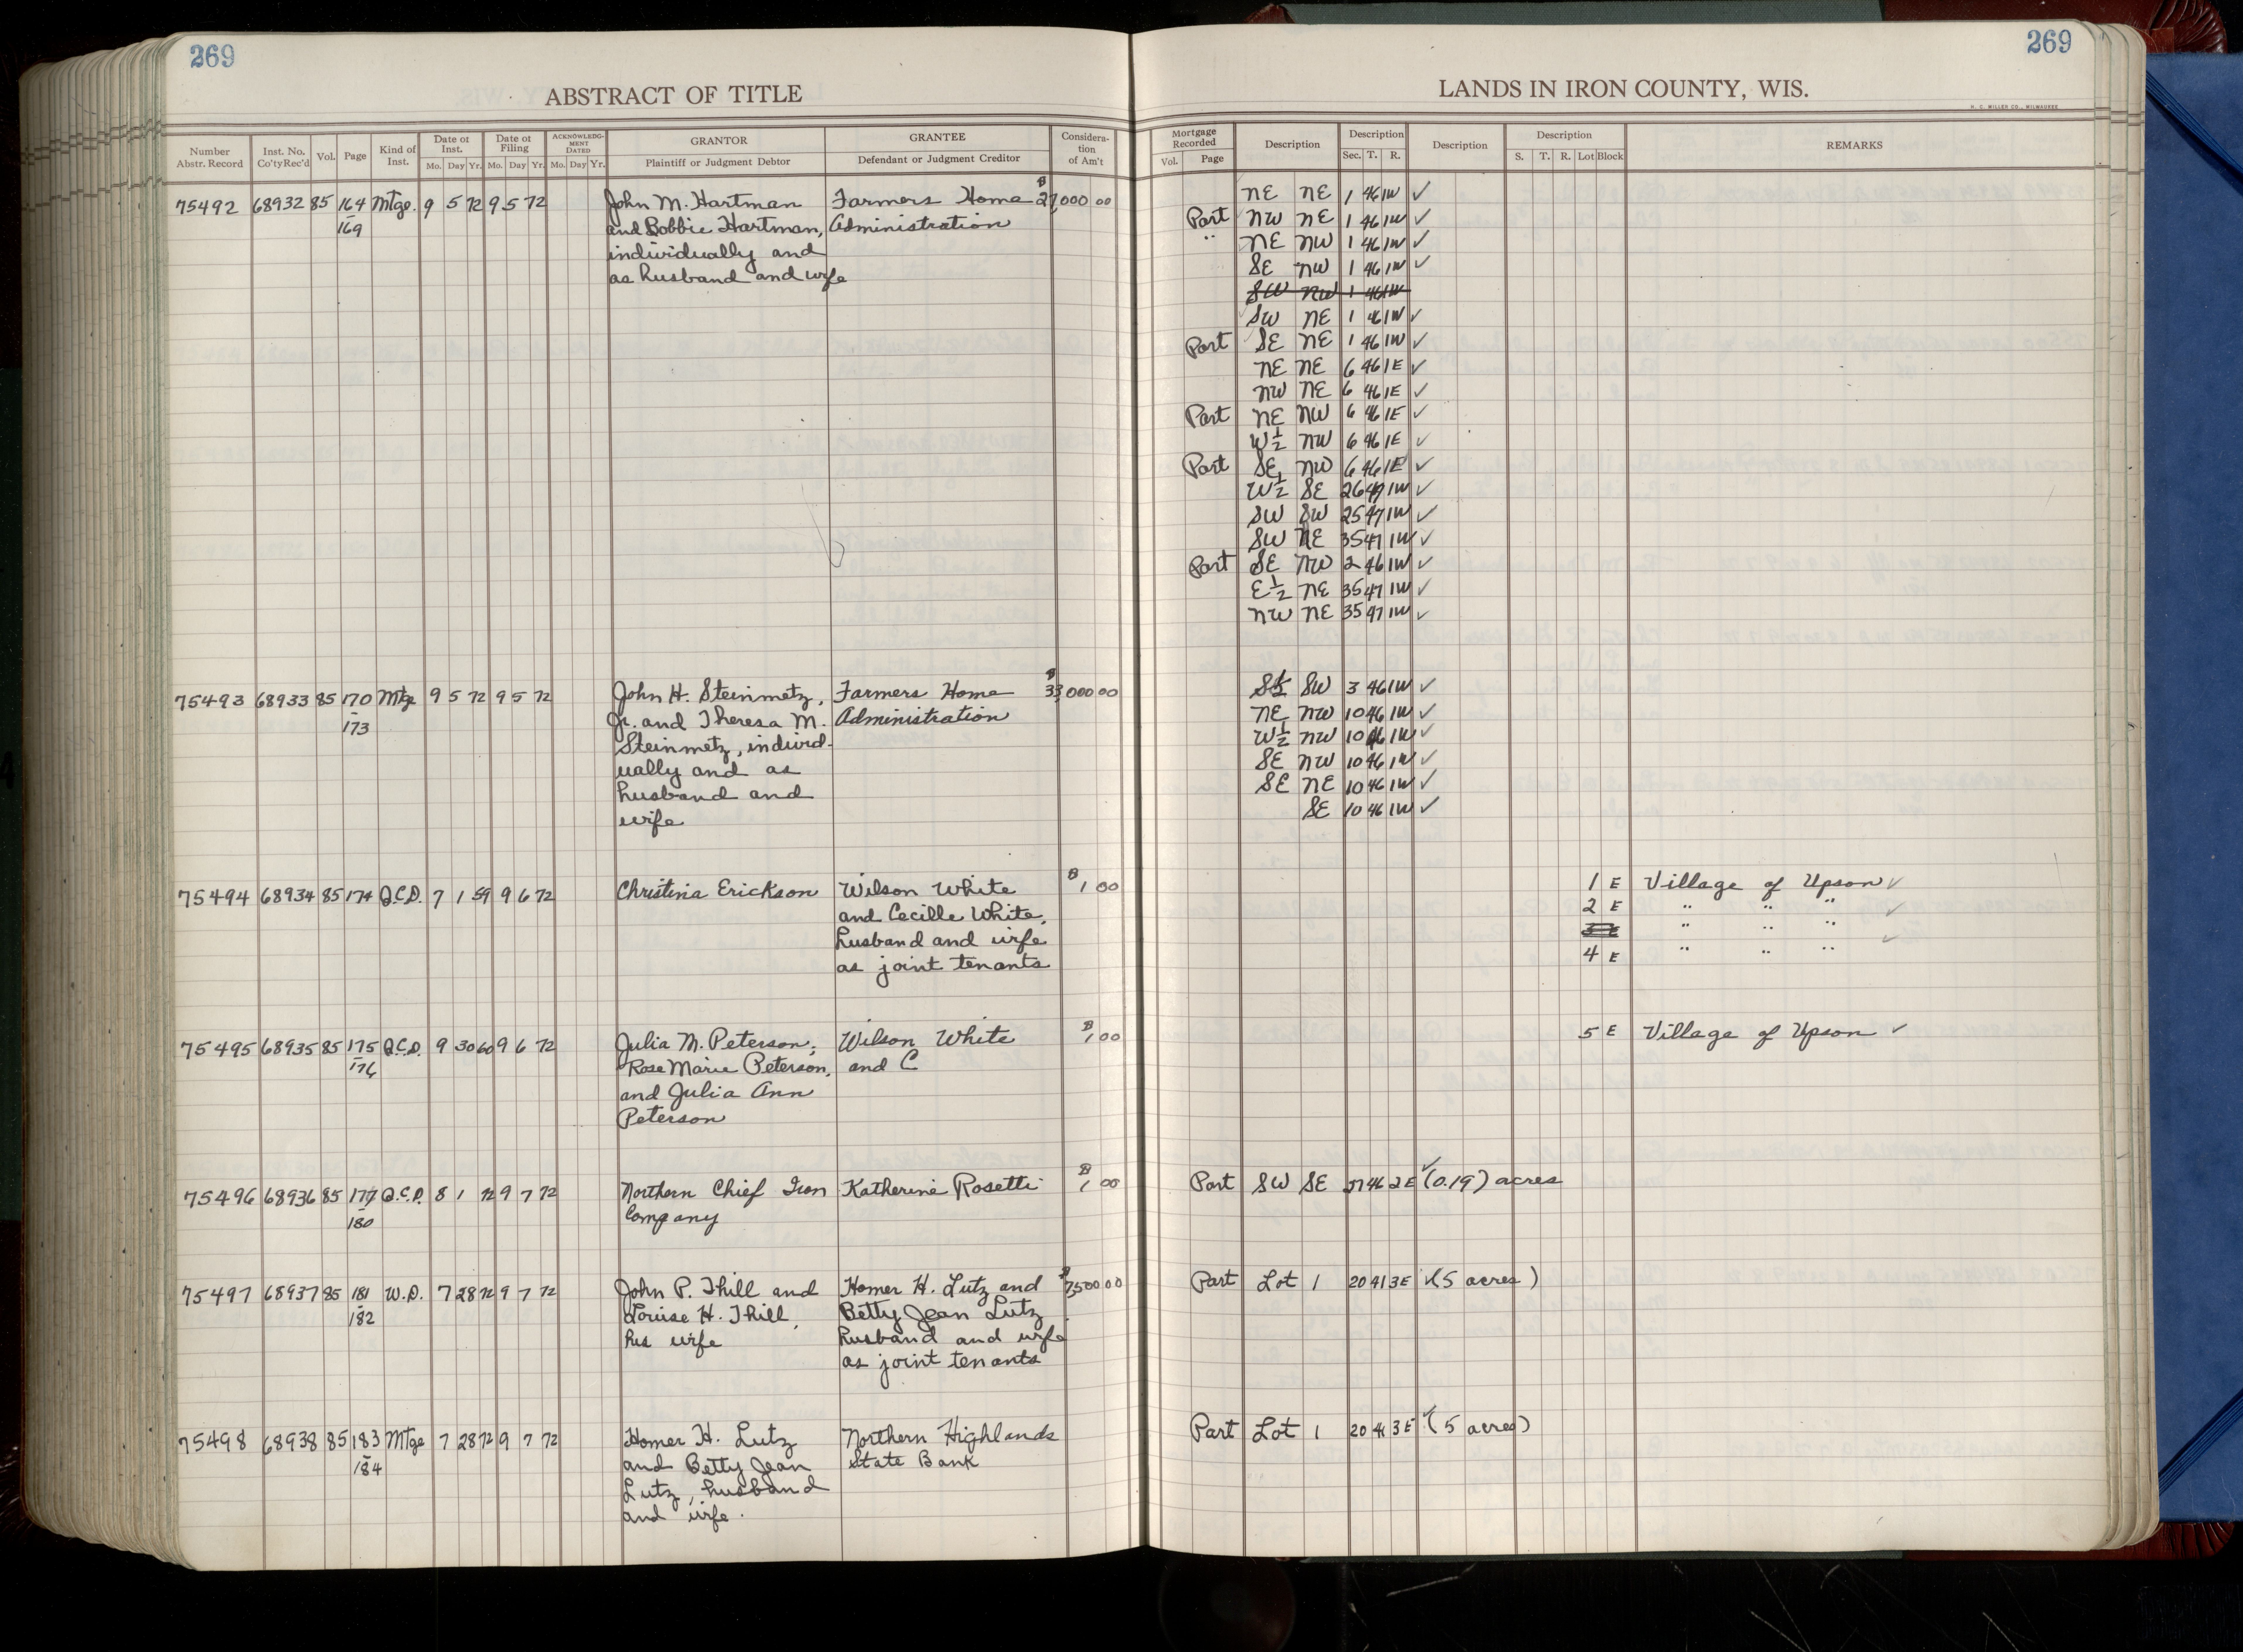 269
ABSTRACT OF TITLE
Number Abstr. Record | Inst. No. Co'ty Rec'd | Vol. | Page | Kind of Inst. | Date of Inst. Mo. Day Yr. | Date of Filing Mo. Day Yr. | ACKNOWLEDGMENT DATED Mo. Day Yr. | GRANTOR Plaintiff or Judgment Debtor | GRANTEE Defendant or Judgment Creditor | Consideration of Am't
75492 68932 85 164 Mtge. 9 5 72 9 5 72 John M. Hartman Farmers Home $27,000 00
- 169 and Bobbie Hartman, Administration
individually and
as husband and wife
75493 68933 85 170 Mtge 9 5 72 9 5 72 John H. Steinmetz, Farmers Home $33,000 00
- 173 Jr. and Theresa M. Administration
Steinmetz, individ-
ually and as
husband and
wife
75494 68934 85 174 Q.C.D. 7 1 59 9 6 72 Christina Erickson Wilson White $1 00
and Cecille White,
husband and wife
as joint tenants
75495 68935 85 175 Q.C.D. 9 30 60 9 6 72 Julia M. Peterson, Wilson White $1 00
- 176 Rose Marie Peterson, and C
and Julia Ann
Peterson
75496 68936 85 177 Q.C.D. 8 1 72 9 7 72 Northern Chief Iron Katherine Rosetti $1 00
- 180 Company
75497 68937 85 181 W.D. 7 28 72 9 7 72 John P. Thill and Homer H. Lutz and $7,500 00
- 182 Louise H. Thill, Betty Jean Lutz
his wife husband and wife
as joint tenants
75498 68938 85 183 Mtge 7 28 72 9 7 72 Homer H. Lutz Northern Highlands
- 184 and Betty Jean State Bank
Lutz, husband
and wife.
269
LANDS IN IRON COUNTY, WIS.
H. C. MILLER CO., MILWAUKEE
Mortgage Recorded Vol. Page | Description | Description Sec. T. R. | Description | Description S. T. R. Lot Block | REMARKS
NE NE 1 46 1W ✓
Part NW NE 1 46 1W ✓
" NE NW 1 46 1W ✓
SE NW 1 46 1W ✓
SW NW 1 46 1W
SW NE 1 46 1W ✓
Part SE NE 1 46 1W ✓
NE NE 6 46 1E ✓
NW NE 6 46 1E ✓
Part NE NW 6 46 1E ✓
W½ NW 6 46 1E ✓
Part SE NW 6 46 1E ✓
W½ SE 26 47 1W ✓
SW SW 25 47 1W ✓
SW NE 35 47 1W ✓
Part SE NW 2 46 1W ✓
E½ NE 35 47 1W ✓
NW NE 35 47 1W ✓
S½ SW 3 46 1W ✓
NE NW 10 46 1W ✓
W½ NW 10 46 1W ✓
SE NW 10 46 1W ✓
SE NE 10 46 1W ✓
SE 10 46 1W ✓
1 E Village of Upson ✓
2 E " " " ✓
3 E " " " ✓
4 E " " "
5 E Village of Upson ✓
Part SW SE 27 46 2E ✓ (0.19) acres
Part Lot 1 20 41 3E ✓ (5 acres)
Part Lot 1 20 41 3E ✓ (5 acres)